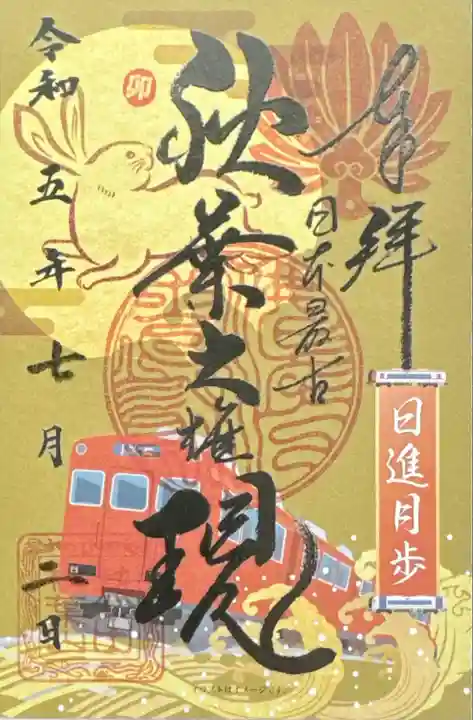 奉拝
日本最古
秋葉大権現
日進月歩
卯
令和五年七月二日